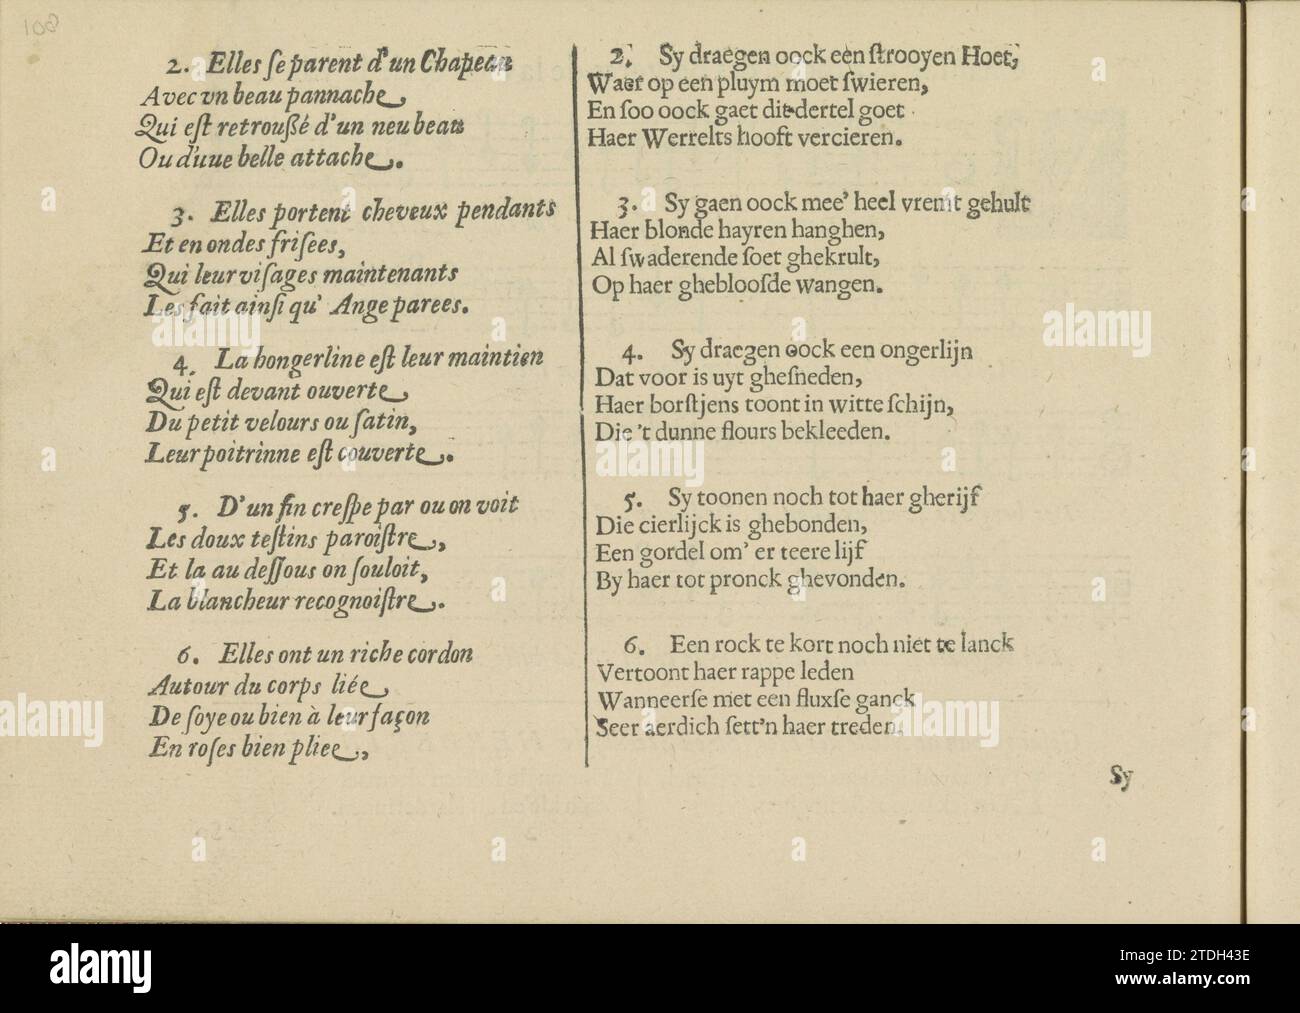 108
2. Elles ſe parent d'un Chapeau
Avec vn beau pannache,
Qui eſt retroußé d'un neu beau
Ou d'uue belle attache.
3. Elles portent cheveux pendants
Et en ondes friſees,
Qui leur viſages maintenants
Les fait ainſi qu' Ange parees.
4. La hongerline eſt leur maintien
Qui eſt devant ouverte
Du petit velours ou ſatin,
Leur poitrinne eſt couverte.
5. D'un fin creſpe par ou on voit
Les doux teſtins paroiſtre,
Et la au deſſous on ſouloit,
La blancheur recognoiſtre.
6. Elles ont un riche cordon
Autour du corps liée
De ſoye ou bien à leur façon
En roſes bien pliee,
2. Sy draegen oock een ſtrooyen Hoet,
Waer op een pluym moet ſwieren,
En ſoo oock gaet dit dertel goet
Haer Werrelts hooft vercieren.
3. Sy gaen oock mee' heel vremt gehult
Haer blonde hayren hanghen,
Al ſwaderende ſoet ghekrult,
Op haer ghebloofde wangen.
4. Sy draegen oock een ongerlijn
Dat voor is uyt gheſneden,
Haer borſtjens toont in witte ſchijn,
Die 't dunne flours bekleeden.
5. Sy toonen noch tot haer gherijf
Die cierlijck is ghebonden,
Een gordel om' er teere lijf
By haer tot pronck ghevonden.
6. Een rock te kort noch niet te lanck
Vertoont haer rappe leden
Wanneerſe met een fluxſe ganck
Seer aerdich ſett'n haer treden.
Sy
alamy
Image ID: 2TDH43E
www.alamy.com